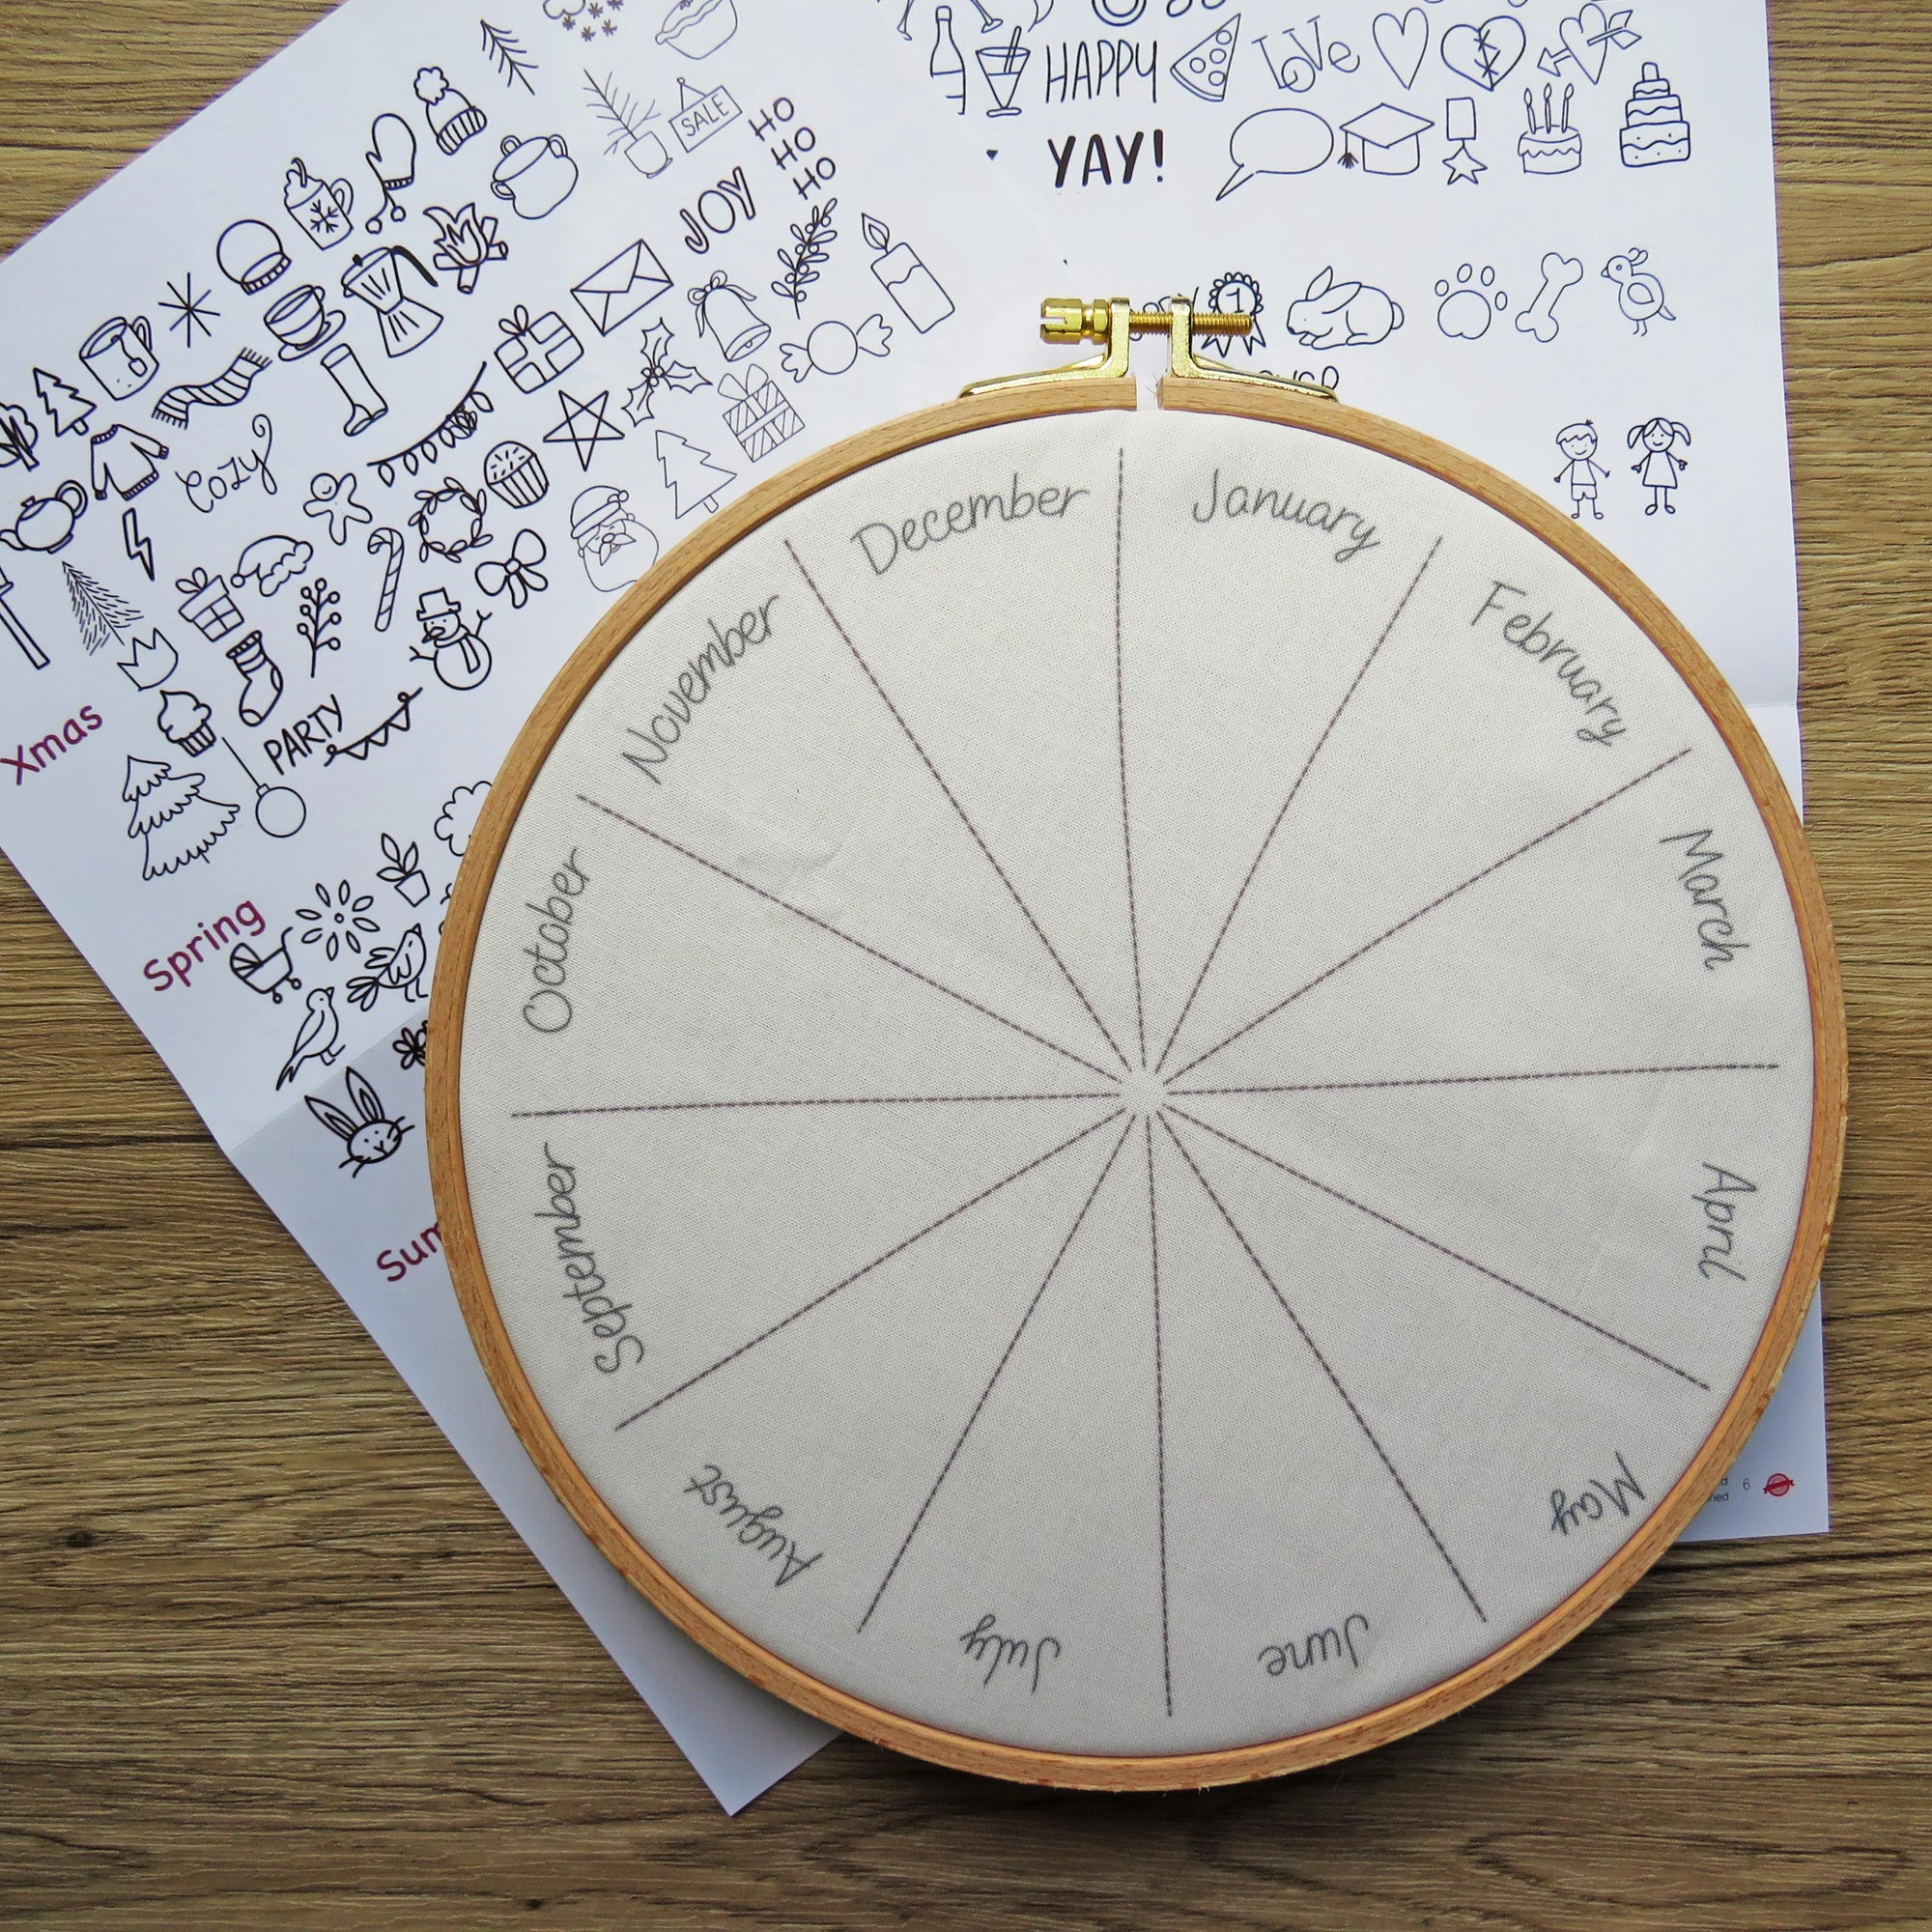 HAPPY
Love
YAY!
SALE
HO
HO
HO
JOY
1
Cozy
PARTY
Xmas
Spring
December
January
February
March
April
May
June
July
August
September
October
November
6